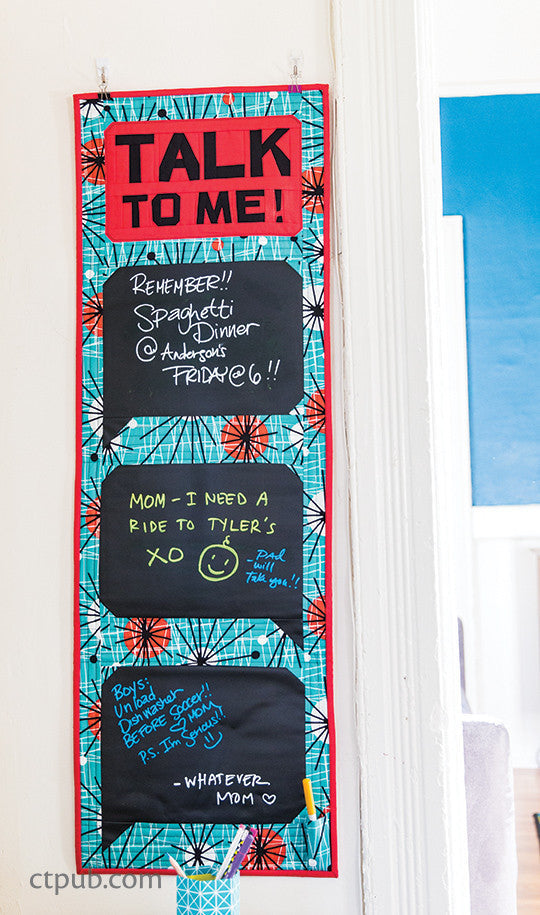 TALK
TO ME!
REMEMBER!!
Spaghetti
Dinner
@ Anderson's
FRIDAY @ 6!!
MOM - I NEED A
RIDE TO TYLER'S
XO
- DAD
will
take you!!
Boys:
Unload
Dishwasher
BEFORE Soccer!!
♡ MOM
P.S. I'm Serious!!
- WHATEVER
MOM ♡
ctpub.com